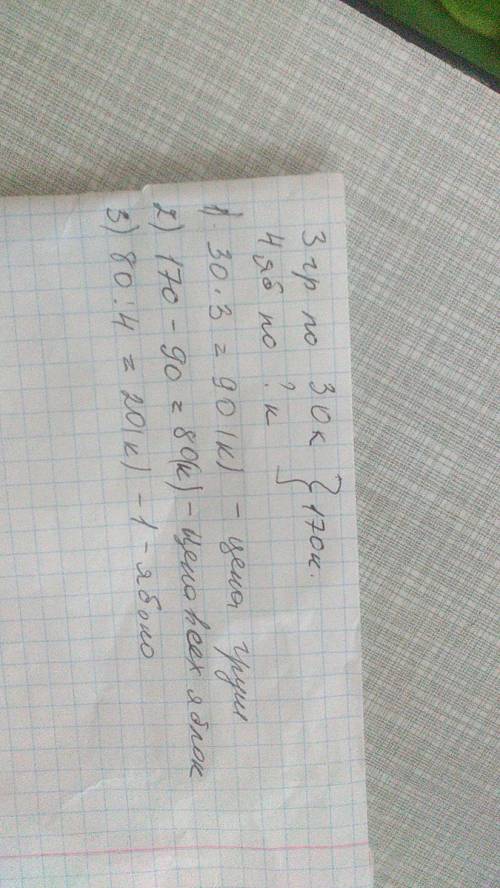 3 гр по 30 к } 170 к.
4 яб по ? к
1). 30 · 3 = 90 (к) - цена груш
2) 170 - 90 = 80(к) - цена всех яблок
3) 80 : 4 = 20(к) - 1 - яблоко